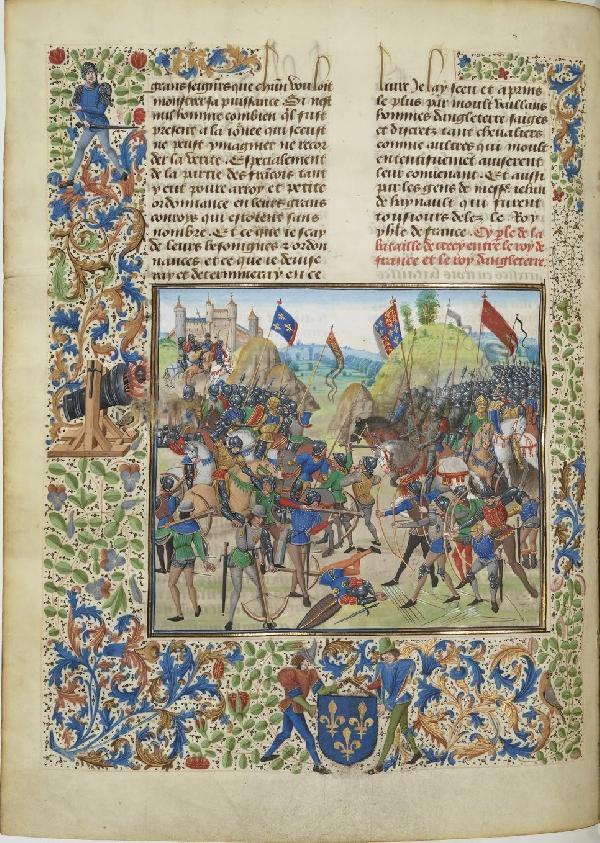 grans seignrs que chascun vouloit
monstrer sa puissance Et nest
nul homme combien quil fust
present a la iournee qui sceust
ne peust ymaginer ne recor
der la verite. Especialement
de la partie des francois tant
y eut poure arroy et petite
ordonnance en leurs grans
conrois qui estoient sans
nombre. Et ce que ie scay
de leurs besongnes et ordon
nances et ce que ie deuise
ray et determineray en ce
liure Je lay sceu et aprins
le plus par moult vaillans
hommes dangleterre saiges
et discretz tant cheualiers
comme aultres qui moult
ententiuement auiserent
leur conuenant. Et aussi
par les gens de messe iehan
de haynault qui furent
tousiours delez le Roy
phle de france. Cy ple de la
bataille de crecy entre le roy de
france et le roy dangleterre.